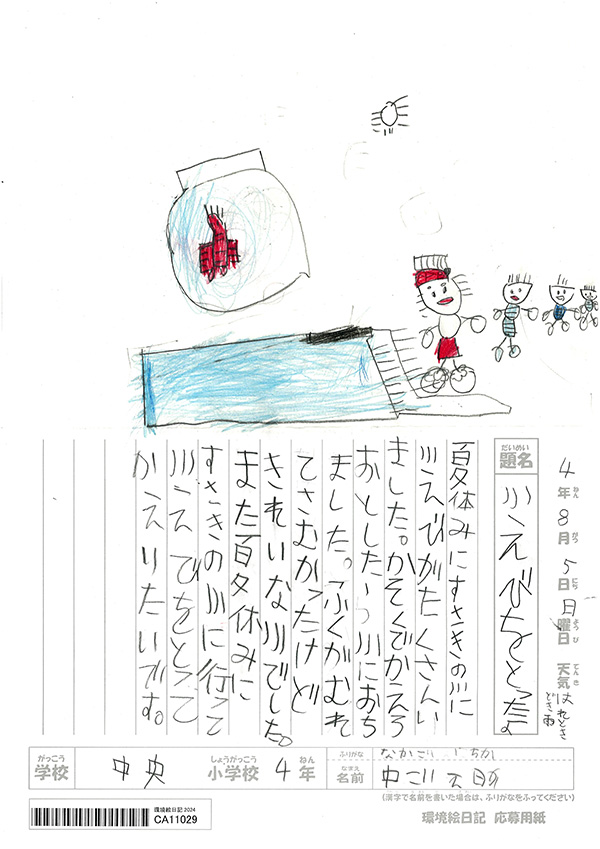 4年ねん8月がつ5日にち日曜ようび日天てん気きはれときどき雨
だいめい
題名
川えびをとったよ
夏休みにすさきの川に
川えびがたくさんい
ました。かぞくでかえろ
ました。ふくがぬれ
てさむかったけど
きれいな川でした。
また夏休みに
すさきの川に行って
川えびをとって
かえりたいです。
がっこう
学校
中央
しょうがっこう
小学校
4
ねん
年
ふりがな
なまえ
名前
(漢字で名前を書いた場合は、ふりがなをふってください)
環境絵日記2024
CA11029
環境絵日記 応募用紙